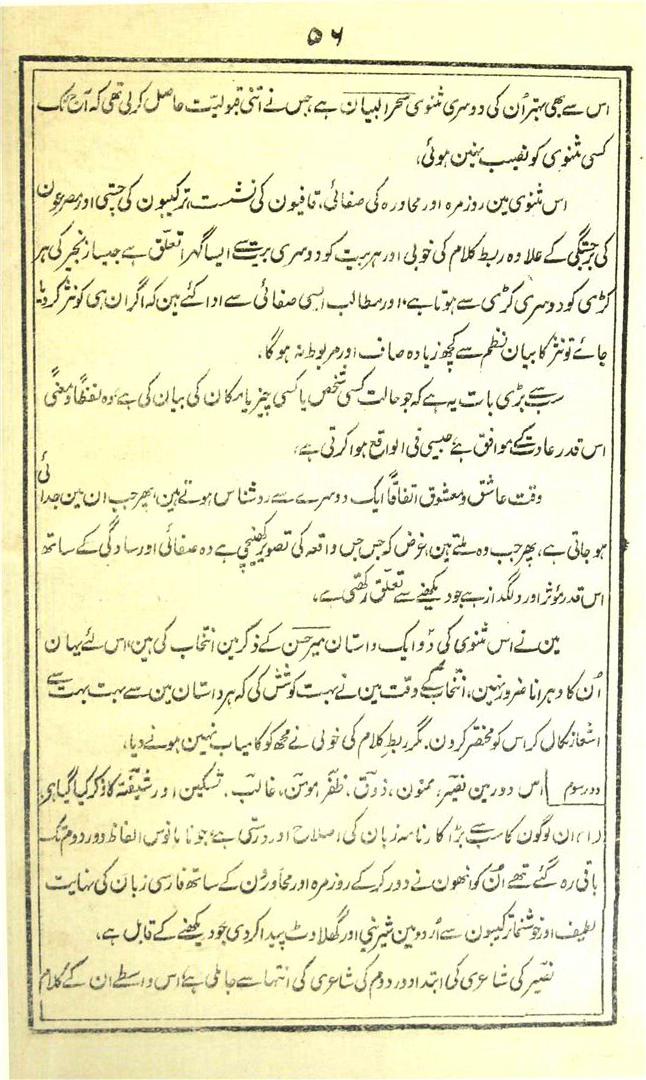 ۵۶
اس سے بھی بہتر اُن کی دوسری مثنوی سحر البیان ہے، جس نے اتنی قبولیت حاصل کر لی تھی کہ آج تک
کسی مثنوی کو نصیب نہین ہوئی،
اس مثنوی مین روزمرہ اور محاورہ کی صفائی، قافیون کی نشست، ترکیبون کی چستی اور مصرعون
کی برجستگی کے علاوہ ربط کلام کی خوبی اور ہر بیت کو دوسری بیت سے ایسا گہرا تعلّق ہے جیسا زنجیر کی ہر
کڑی کو دوسری کڑی سے ہوتا ہے، اور مطالب ایسی صفائی سے ادا کئے ہین کہ اگر ان ہی کو نثر کر دیا
جائے تو نثر کا بیان نظم سے کچھ زیادہ صاف اور مربوط نہ ہو گا،
سب سے بڑی بات یہ ہے کہ جو حالت کسی شخص یا کسی چیز یا مکان کی بیان کی ہے، وہ لفظاً و معنیً
اس قدر عادت کے موافق ہے جیسی فی الواقع ہوا کرتی ہے،
وقت عاشق و معشوق اتفاقاً ایک دوسرے سے روشناس ہوتے ہین، پھر جب ان مین جدائی
ہو جاتی ہے، پھر جب وہ ملتے ہین، غرض کہ جس جس واقعہ کی تصویر کھینچی ہے وہ صفائی اور سادگی کے ساتھ
اس قدر مؤثر اور دلگداز ہے جو دیکھنے سے تعلّق رکھتی ہے،
مین نے اس مثنوی کی دو ایک داستان میر حسن کے ذکر مین انتخاب کی ہین، اس لئے یہان
اُن کا دہرانا ضرور نہین، انتخاب کے وقت مین نے بہت کوشش کی کہ ہر داستان مین سے بہت بہت سے
اشعار نکال کر اس کو مختصر کر دون۔ مگر ربطِ کلام کی خوبی نے مجھ کو کامیاب نہین ہونے دیا،
دور سوم اس دور مین نصیر، ممنون، ذوق، ظفر، مومن، غالب، تسکین اور شیفتہ کا ذکر کیا گیا ہی
(۱) ان لوگون کا سب سے بڑا کارنامہ زبان کی اصلاح اور درستی ہے، جو نا مانوس الفاظ دور دوم تک
باقی رہ گئے تھے اُن کو انھون نے دور کر کے روزمرہ اور محاورون کے ساتھ فارسی زبان کی نہایت
لطیف اور خوشنما ترکیبون سے اُردو مین شیرینی اور گھلاوٹ پیدا کر دی جو دیکھنے کے قابل ہے،
نصیر کی شاعری کی ابتدا دور دوم کی شاعری کی انتہا سے جا ملی ہے، اس واسطے ان کے کلام